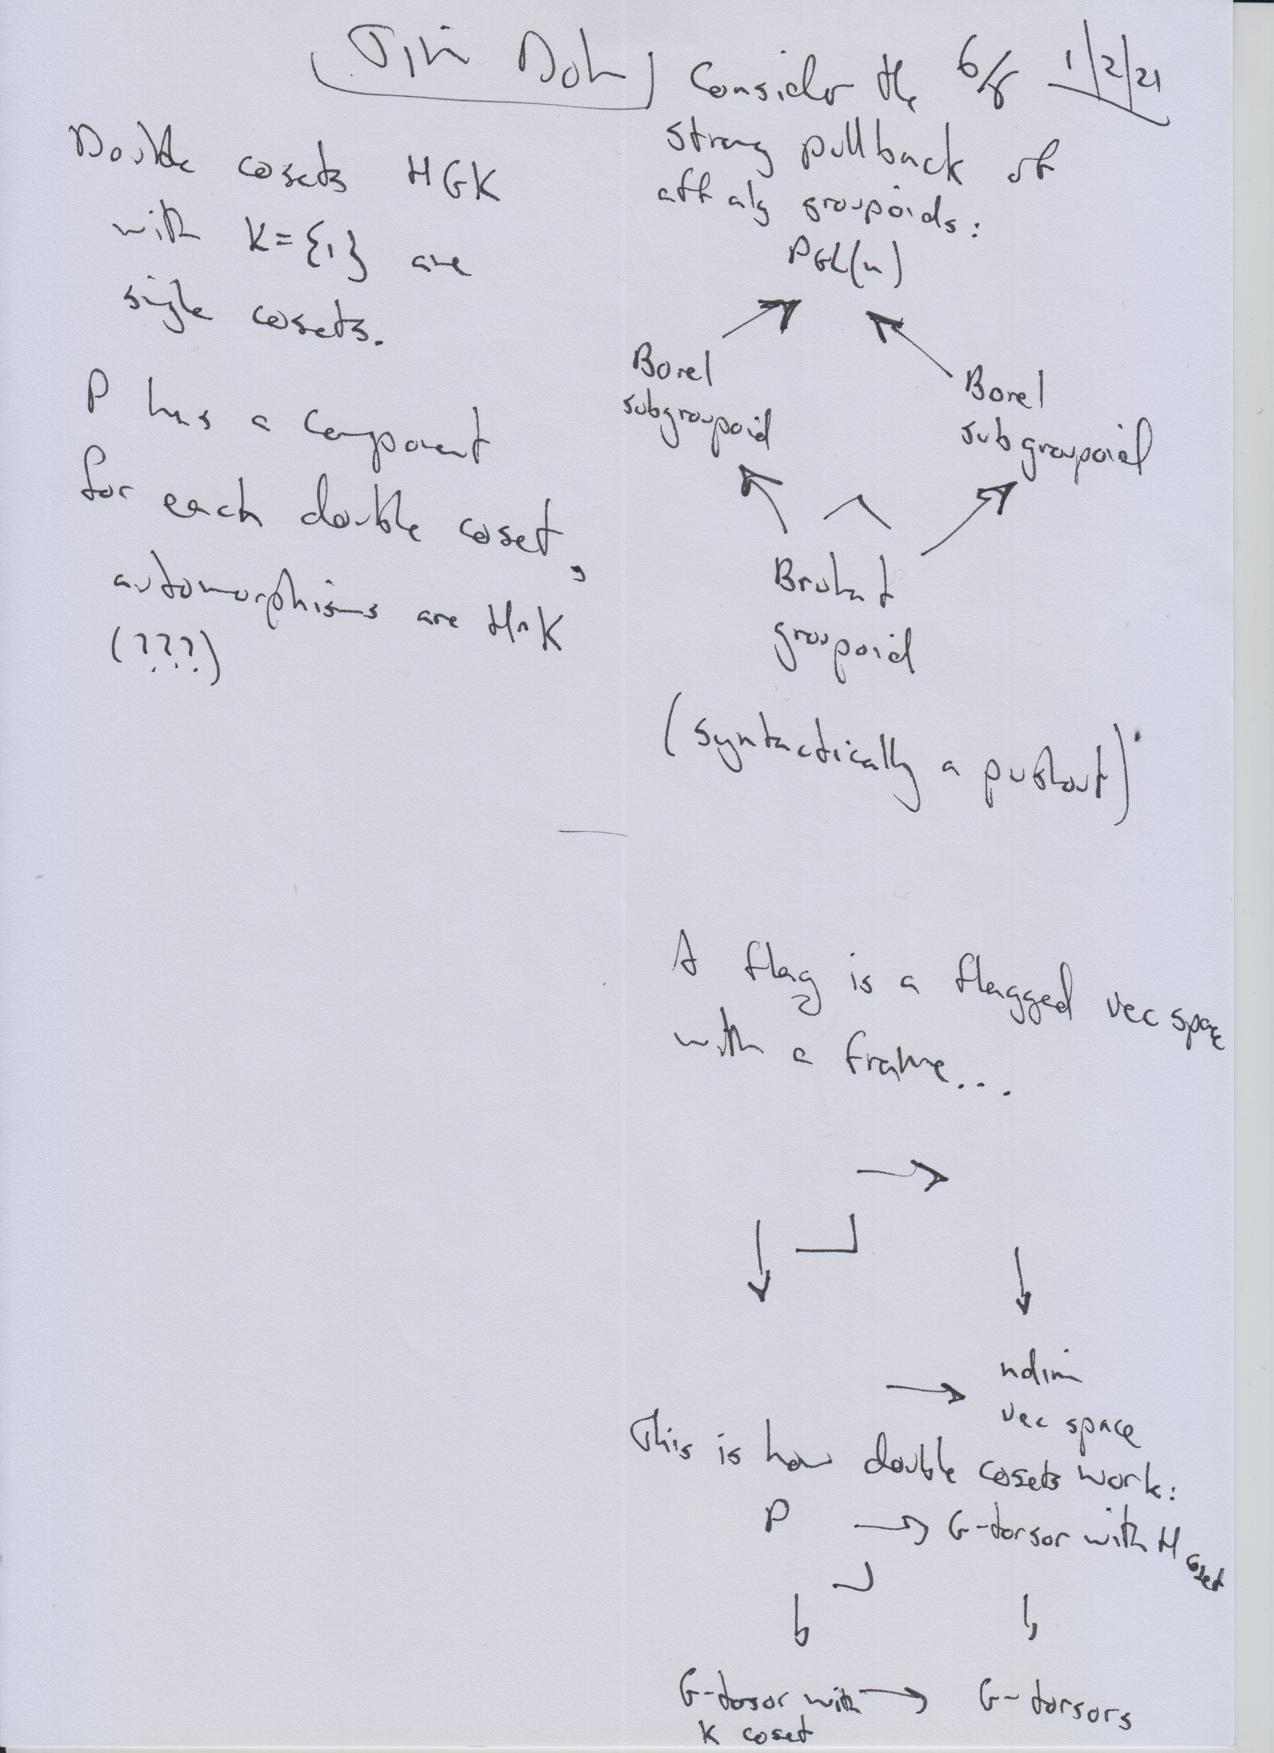 Jim Dol
6/8 1/2/21
Double cosets HGK
with K={1} are
single cosets.
P has a component
for each double coset,
automorphisms are H∩K
(???)
Consider the
strong pullback of
aff alg groupoids:
PGL(n)
Borel
subgroupoid
Borel
subgroupoid
Bruhat
groupoid
(syntactically a pushout)
A flag is a flagged vec space
with a frame...
ndim
vec space
This is how double cosets work:
P → G-torsor with H coset
G-torsor with → G-torsors
K coset